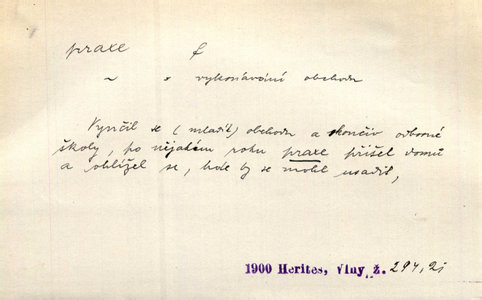 praxe f
~ » vykonávání obchodu
Vyučil se (mladík) obchodu a skončiv odborné
školy, po nějakém roku praxe přišel domů
a ohlížel se, kde by se mohl usadit,
1900 Herites, Vlny ž. 294, 2